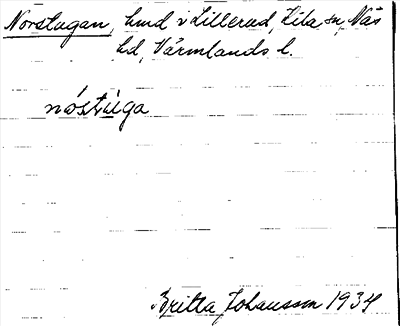 Norstugan, hmd v Lillerud, Lila sn, Näs
hd, Värmlands l.
nớstùga
Britta Johansson 1934